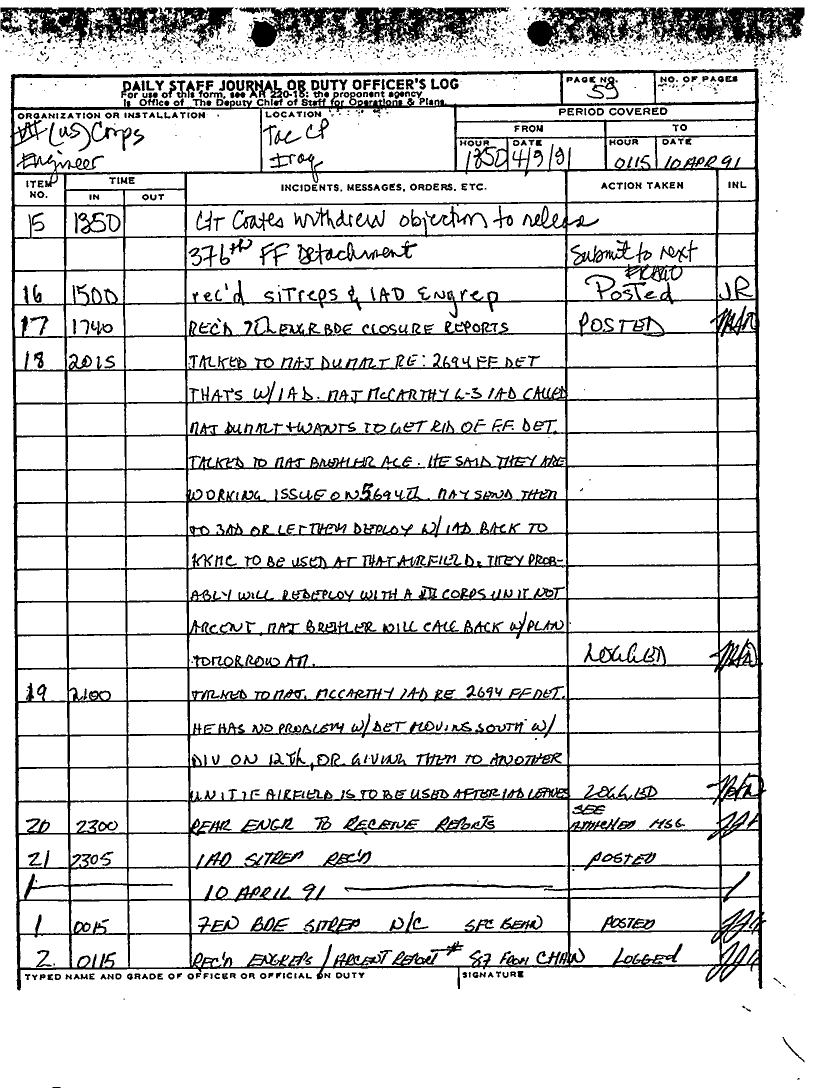 DAILY STAFF JOURNAL OR DUTY OFFICER'S LOG
For use of this form, see AR 220-15: the proponent agency
is Office of The Deputy Chief of Staff for Operations & Plans.
PAGE NO.
59
NO. OF PAGES
ORGANIZATION OR INSTALLATION
VII (US) Corps
Engineer
LOCATION
Tac CP
Iraq
PERIOD COVERED
FROM
TO
HOUR
1350
DATE
4/9/91
HOUR
0115
DATE
10 APR 91
ITEM NO.
TIME
IN
OUT
INCIDENTS, MESSAGES, ORDERS, ETC.
ACTION TAKEN
INL
15 1350 Coates withdrew objection to release
376th FF Detachment Submit to next
16 1500 rec'd sitreps & 1AD Engrep Posted JR
17 1740 REC'D 7th ENGR BDE CLOSURE REPORTS POSTED
18 2015 TALKED TO MAJ DUMALT RE: 2694 FF DET
THAT'S W/1AD. MAJ McCARTHY G-3 1AD CALLED
MAJ DUMALT + WANTS TO GET RID OF F.F. DET.
TALKED TO MAJ BREHLER ACE. HE SAID THEY ARE
WORKING ISSUE ON 5694th. MAY SEND THEM
TO 3AD OR LET THEM DEPLOY W/1AD BACK TO
KKMC TO BE USED AT THAT AIRFIELD. THEY PROB-
ABLY WILL REDEPLOY WITH A VII CORPS UNIT NOT
ARCENT. MAJ BREHLER WILL CALL BACK W/PLAN
TOMORROW AM. LOGGED
19 2100 TALKED TO MAJ. McCARTHY 1AD RE 2694 FF DET.
HE HAS NO PROBLEM W/DET MOVING SOUTH W/
DIV ON 12th, OR GIVING THEM TO ANOTHER
UNIT IF AIRFIELD IS TO BE USED AFTER 1AD LEAVES LOGGED
20 2300 REAR ENGR TO RECEIVE REPORTS SEE ATTACHED MSG
21 2305 1AD SITREP REC'D POSTED
10 APRIL 91
1 0015 7EN BDE SITREP N/C SFC BEAN POSTED
2 0115 REC'D ENGREPS / ARCENT REPORT # 87 FROM CHAN LOGGED
TYPED NAME AND GRADE OF OFFICER OR OFFICIAL ON DUTY
SIGNATURE